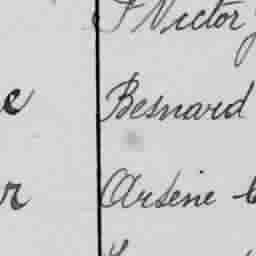 Victor
e Besnard
r Arsène